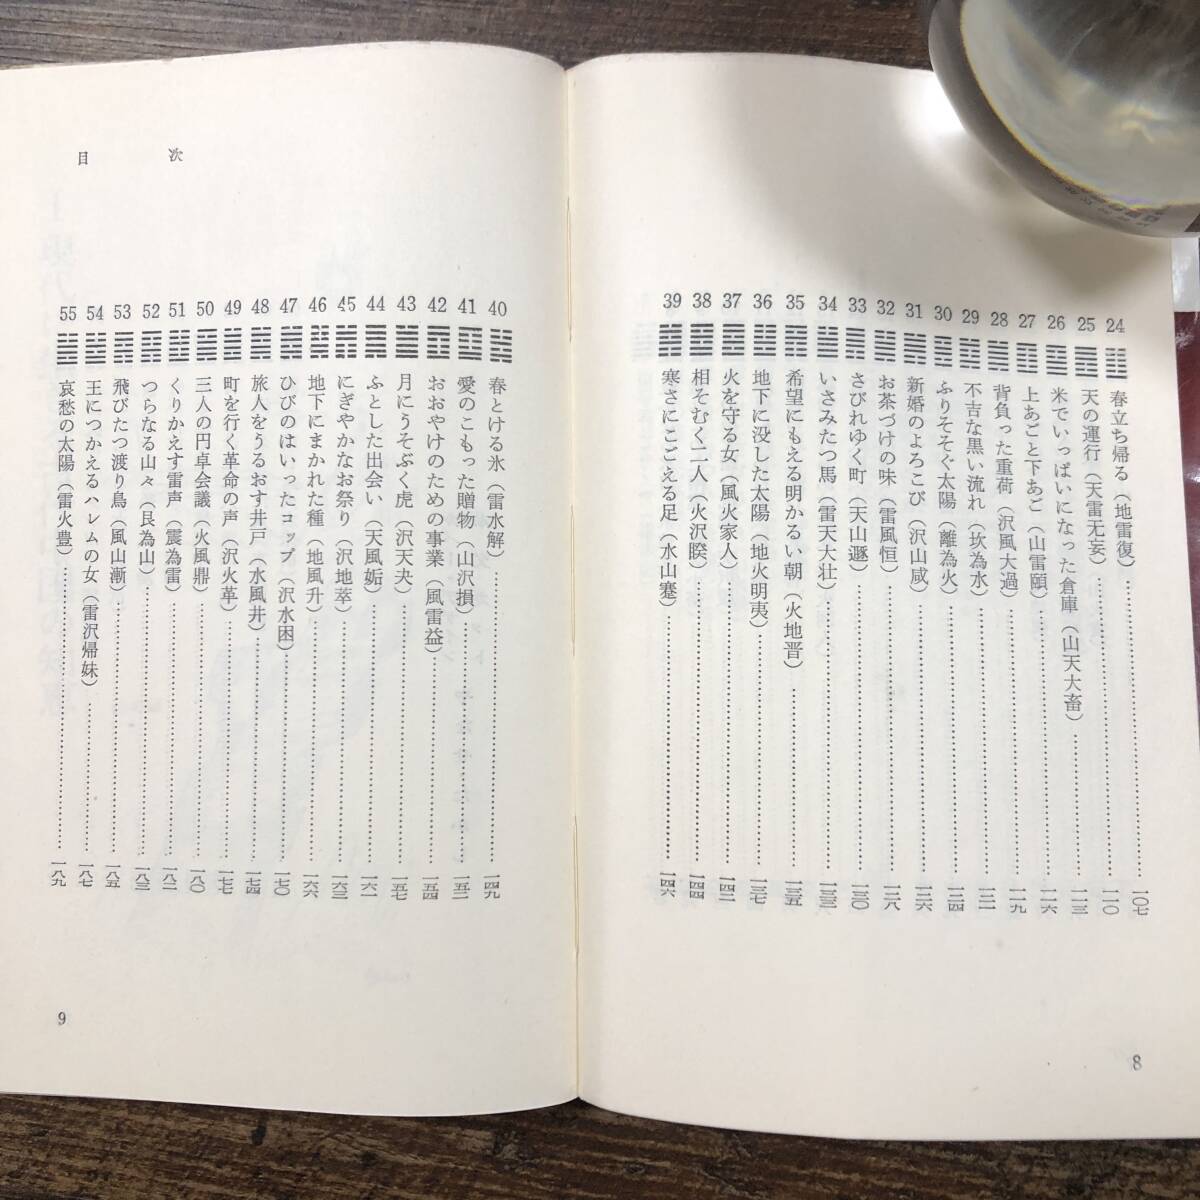 24 春立ち帰る（地雷復）……一〇七
25 天の運行（天雷无妄）……一一〇
26 米でいっぱいになった倉庫（山天大畜）……一一三
27 上あごと下あご（山雷頤）……一一六
28 背負った重荷（沢風大過）……一一九
29 不吉な黒い流れ（坎為水）……一二一
30 ふりそそぐ太陽（離為火）……一二四
31 新婚のよろこび（沢山咸）……一二六
32 お茶づけの味（雷風恒）……一二八
33 さびれゆく町（天山遯）……一三〇
34 いさみたつ馬（雷天大壮）……一三三
35 希望にもえる明かるい朝（火地晋）……一三五
36 地下に没した太陽（地火明夷）……一三七
37 火を守る女（風火家人）……一四二
38 相そむく二人（火沢睽）……一四四
39 寒さにこごえる足（水山蹇）……一四六
8
40 春とける氷（雷水解）……一四九
41 愛のこもった贈物（山沢損）……一五二
42 おおやけのための事業（風雷益）……一五四
43 月にうそぶく虎（沢天夬）……一五七
44 ふとした出会い（天風姤）……一六一
45 にぎやかなお祭り（沢地萃）……一六三
46 地下にまかれた種（地風升）……一六六
47 ひびのはいったコップ（沢水困）……一七〇
48 旅人をうるおす井戸（水風井）……一七四
49 町を行く革命の声（沢火革）……一七七
50 三人の円卓会議（火風鼎）……一八〇
51 くりかえす雷声（震為雷）……一八二
52 つらなる山々（艮為山）……一八三
53 飛びたつ渡り鳥（風山漸）……一八五
54 王につかえるハレムの女（雷沢帰妹）……一八七
55 哀愁の太陽（雷火豊）……一八九
目次
9